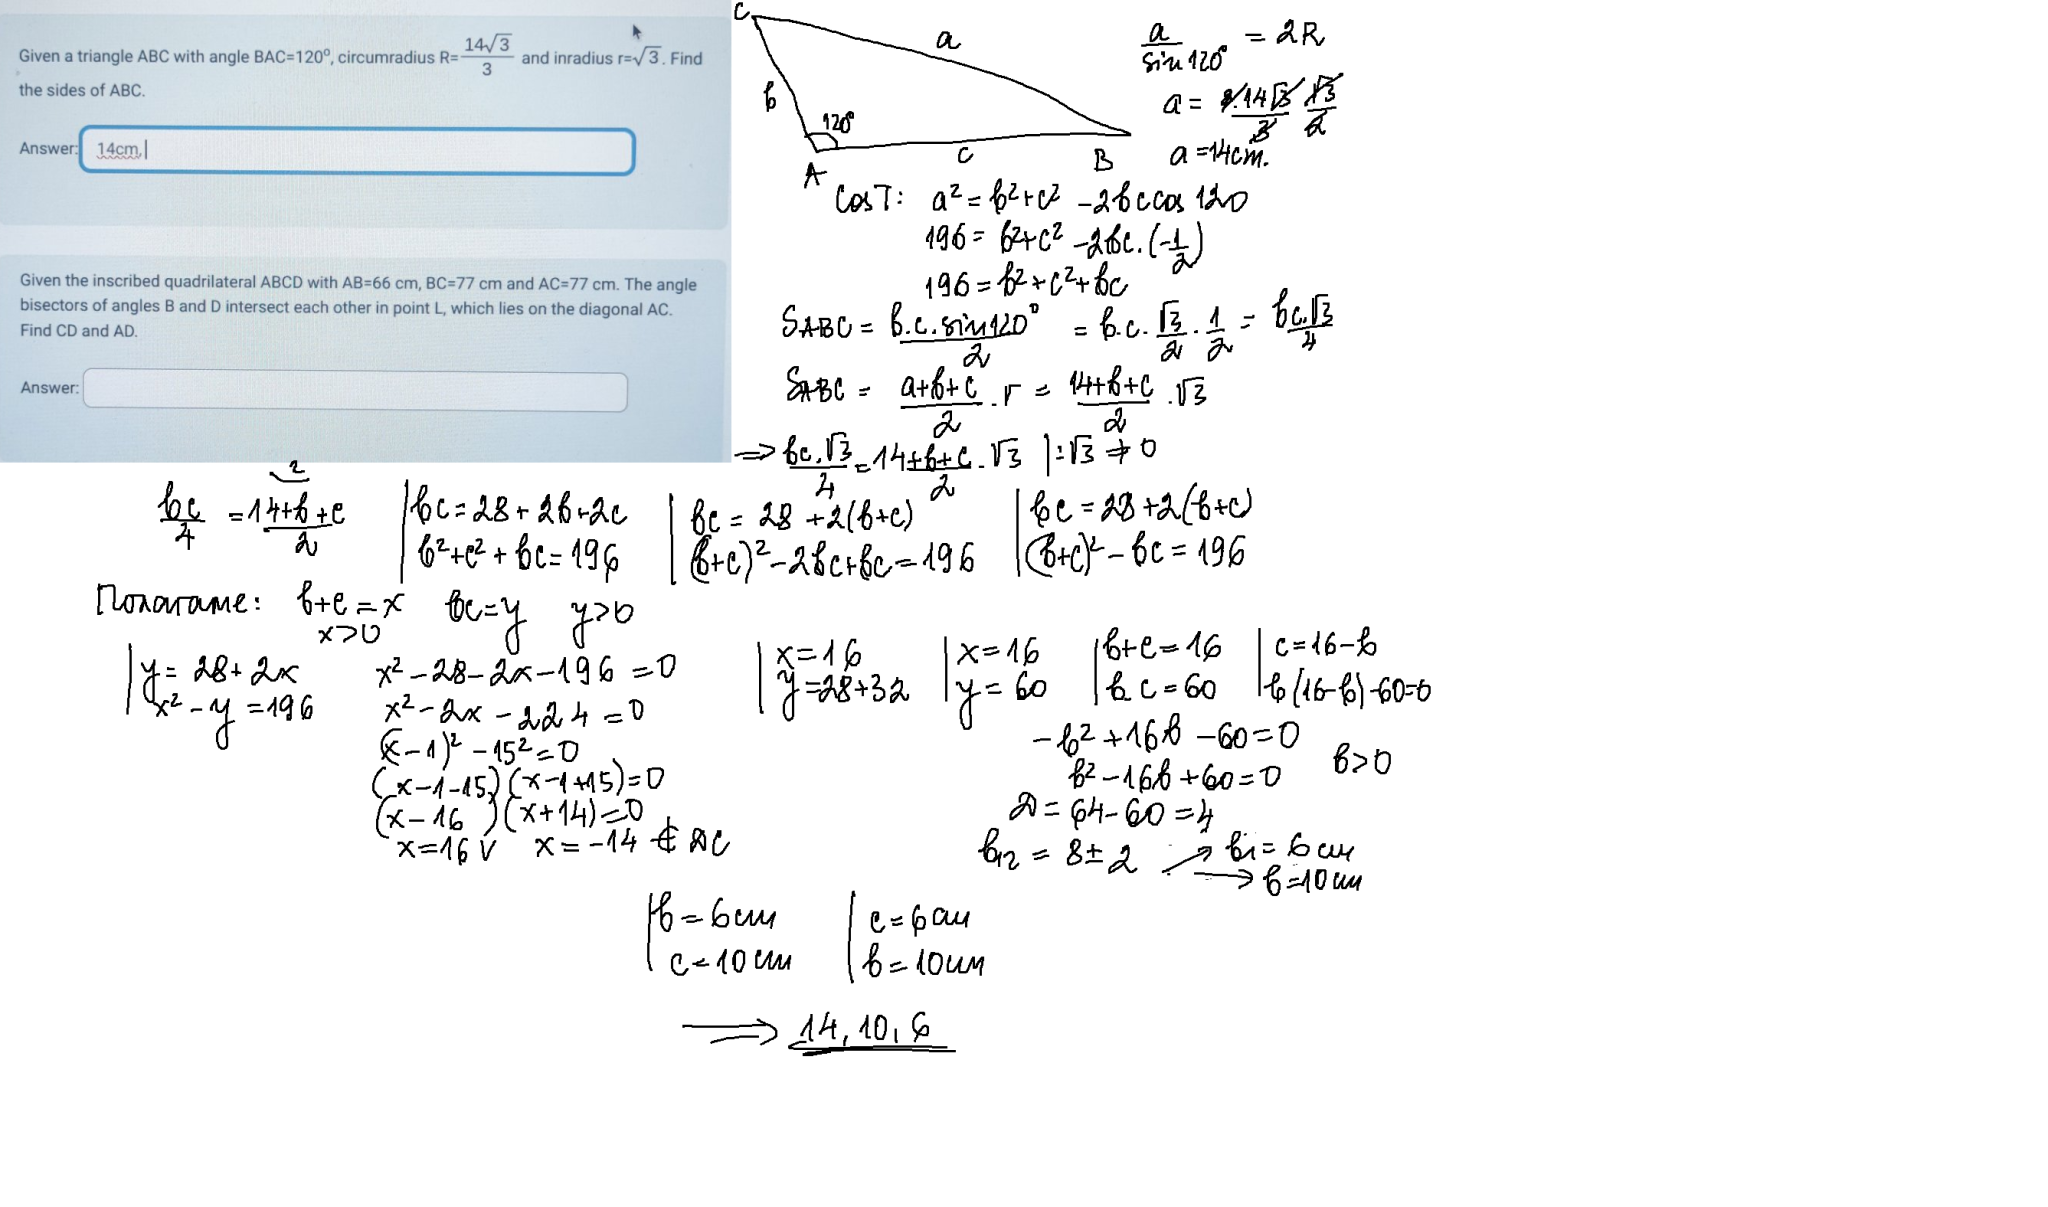 Given a triangle ABC with angle BAC=120°, circumradius R=14√3/3 and inradius r=√3. Find
the sides of ABC.
Answer: 14cm,
Given the inscribed quadrilateral ABCD with AB=66 cm, BC=77 cm and AC=77 cm. The angle
bisectors of angles B and D intersect each other in point L, which lies on the diagonal AC.
Find CD and AD.
Answer:
C
a
b
120°
c
A
B
a/sin120° = 2R
a = 2.14√3/3 √3/2
a=14cm.
CosT: a² = b²+c² -2bccos 120
196 = b²+c² -2bc.(-1/2)
196 = b²+c²+bc
SABC = b.c.sin120°/2 = b.c.√3/2.1/2 = bc√3/4
SABC = a+b+c/2 .r = 14+b+c/2 .√3
⇒ bc.√3/4 = 14+b+c/2 .√3 |:√3 ≠ 0
2
bc/4 = 14+b+c/2
| bc = 28+2b+2c
| b²+c²+bc = 196
| bc = 28+2(b+c)
| (b+c)²-2bc+bc = 196
| bc = 28+2(b+c)
| (b+c)²-bc = 196
Полагаме: b+c=x bc=y y>0
x>0
| y = 28+2x
| x²-y = 196
x²-28-2x-196 = 0
x²-2x-224 = 0
(x-1)²-15² = 0
(x-1-15)(x-1+15) = 0
(x-16)(x+14) = 0
x=16 V x=-14 ∉ ДС
| x=16
| y=28+32
| x=16
| y=60
| b+c=16
| b.c=60
| c=16-b
| b(16-b)-60=0
-b²+16b-60=0
b²-16b+60=0 b>0
D = 64-60 = 4
b12 = 8±2 → b1=6cm
→ b=10cm
| b=6cm
| c=10cm
| c=6cm
| b=10cm
⇒ 14, 10, 6